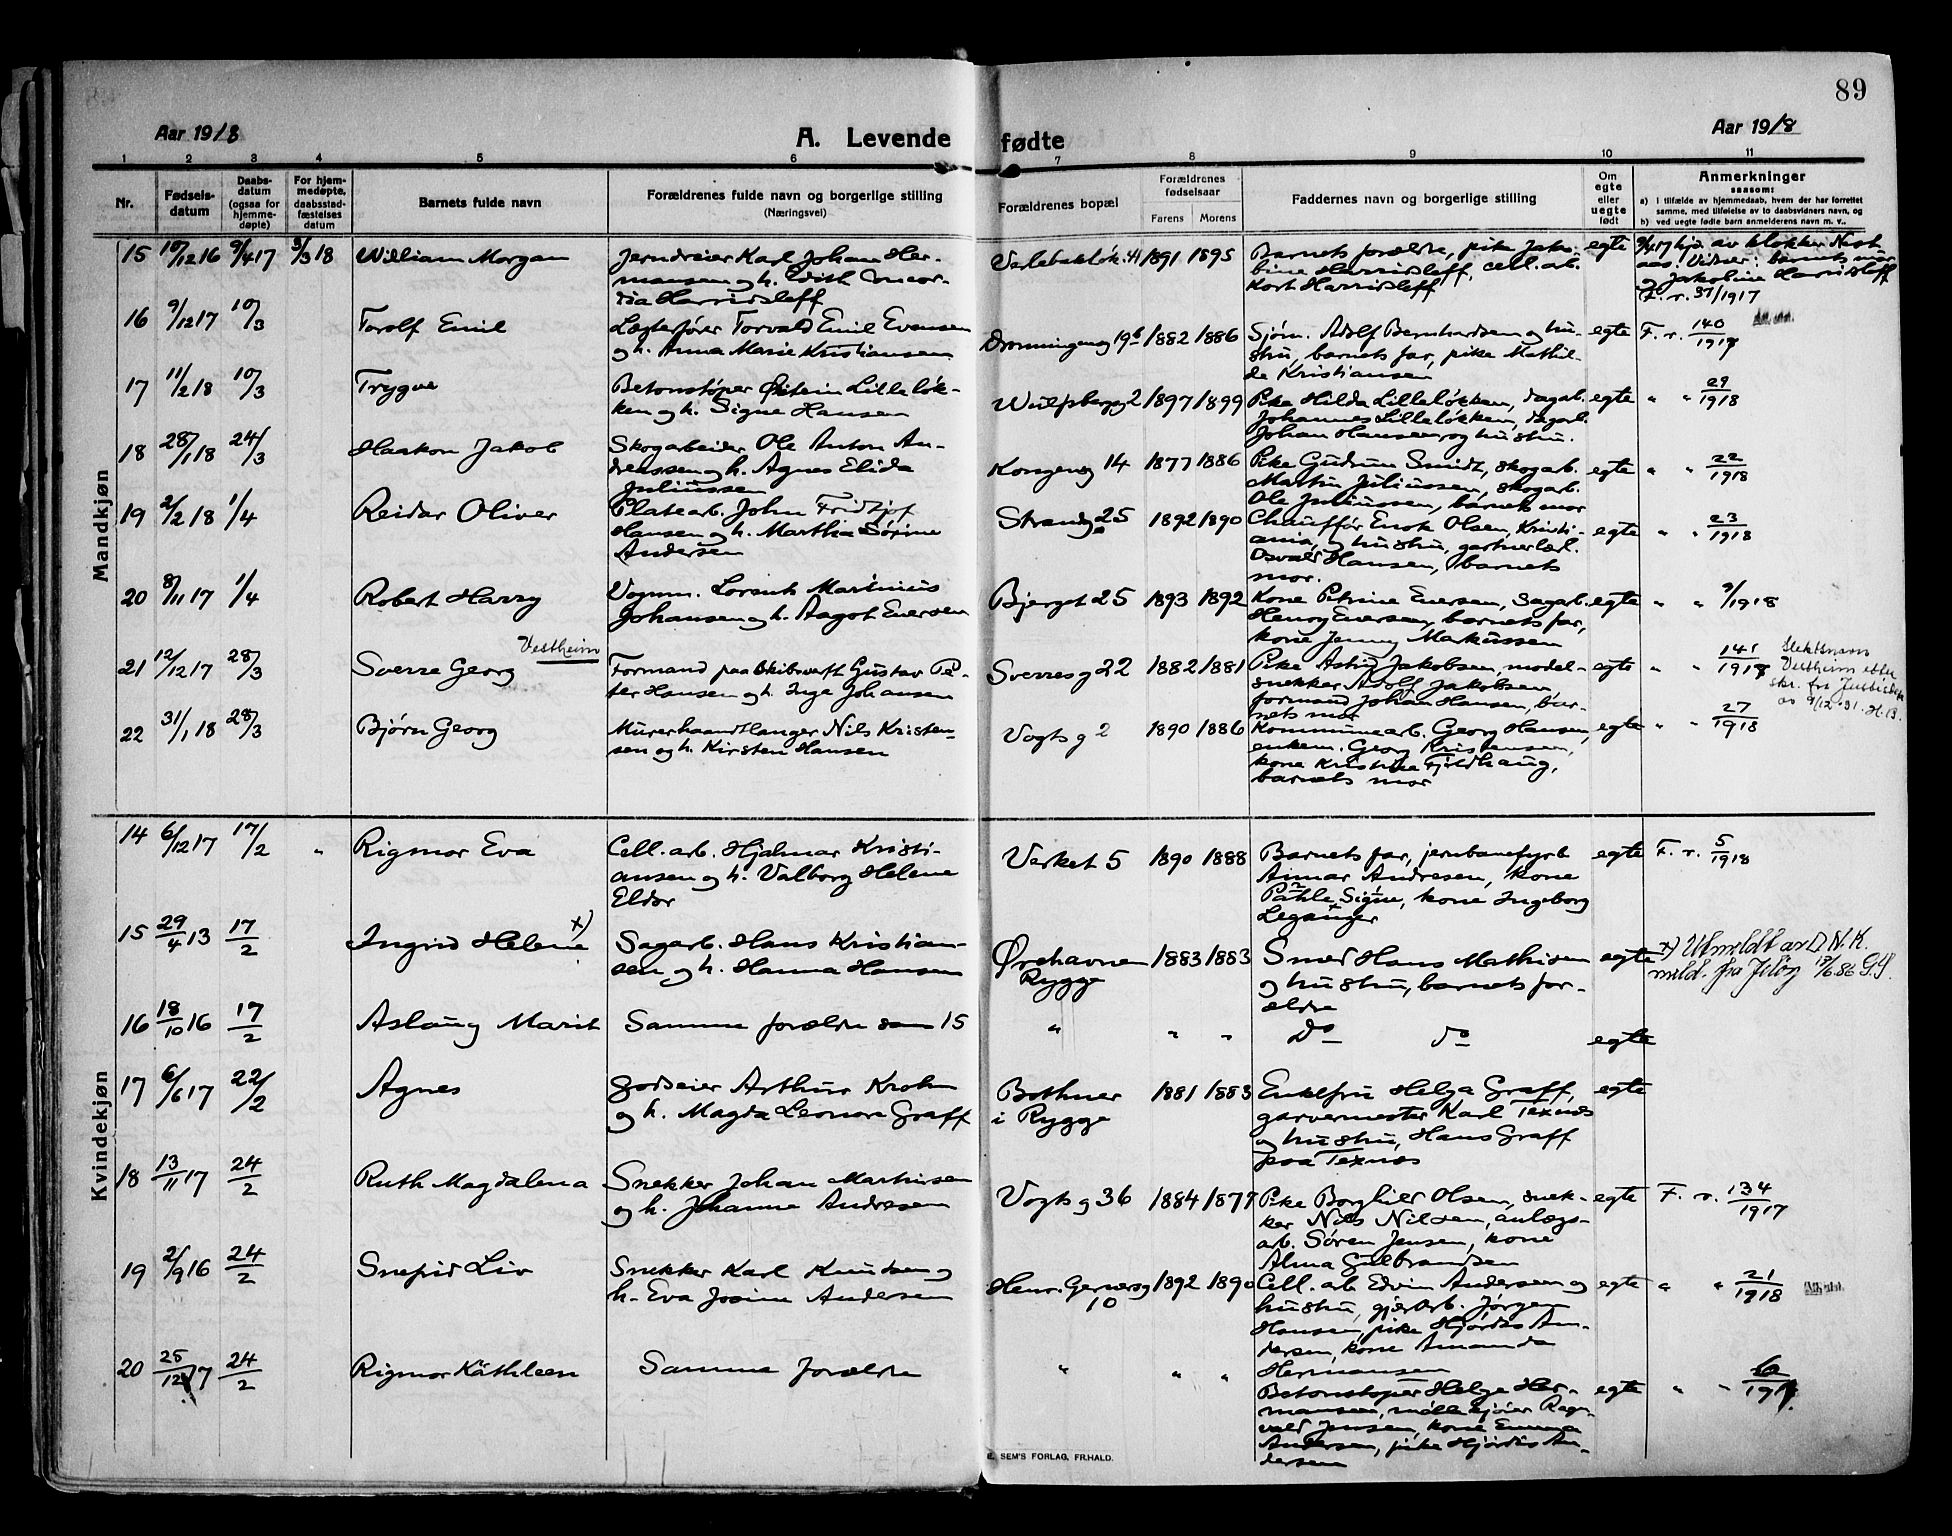 89
Aar 1918
A. Levende fødte
Aar 1918
1 2 3 4 5 6 7 8 9 10 11
Nr.
Fødsels-
datum
Daabs-
datum
(ogsaa for
hjemme-
døpte)
For hjem-
medøpte,
daabsstad-
fæstelses
datum
Barnets fulde navn
Forældrenes fulde navn og borgerlige stilling
(Næringsvei)
Forældrenes bopæl
Forældrenes
fødselsaar
Farens Morens
Faddernes navn og borgerlige stilling
Om
egte
eller
uegte
født
Anmerkninger
saasom:
a) I tilfælde av hjemmedaab, hvem der har forrettet
samme, med tilføielse av to daabsvidners navn, og
b) ved uegte fødte barn anmelderens navn m. v..
Mandkjøn
15 10/12 16 9/4 17 3/3 18 William Morgan
Jerndreier Karl Johan Her-
mansen og h. Edith
Harridsleff
1891 1895
Barnets forældre, pike Jako-
bine Harridsleff, cell. arb.
Harridsleff
egte
9/4 17 hjd. av klokker
aas. Vidner: barnets mor
og Jakobine Harridsleff
F. r. 37/1917
16 9/12 17 10/3 Torolf Emil
Lægterfører Torvald Emil Evensen
og h. Anna Marie Kristiansen
Dronningensg 19b 1882 1886
Sjøm. Adolf Bernhardsen og hu-
stru, barnets far, pike Mathil-
de Kristiansen
egte F. r. 140/1917
17 11/2 18 10/3 Trygve
Betonstøper Øistein Lilleløk-
ken og h. Signe Hansen
Wulfsbergg 2 1897 1899
Pike Hilda Lilleløkken, dagarb.
Johannes Lilleløkken, dagarb.
Johan Hansen og hustru.
egte " " 29/1918
18 28/1 18 24/3 Haakon Jakob
Skogarbeider Ole Anton An-
dreassen og h. Agnes Elida
Juliussen
Kongensg 14 1877 1886
Pike Gudrun Smidt, skogarb.
Martin Juliussen, skogarb.
Ole Juliussen, barnets mor
egte " " 22/1918
19 2/2 18 1/4 Reidar Oliver
Platearb. John Fridtjof
Hansen og h. Martha Sørine
Andersen
Strandg 25 1892 1890
Chauffør Enok Olsen, Kristi-
ania, og hustru, gartnerlærl.
Osvald Hansen, barnets
mor.
egte " " 23/1918
20 8/11 17 1/4 Robert Harry
Vognm. Lorents Martinius
Johansen og h. Aagot Eversen
Bjerget 25 1893 1892
Kone Petrine Eversen, sagarb.
Henry Eversen, barnets far,
kone Jenny Markussen
egte " " 9/1918
21 12/12 17 28/3 Sverre Georg Vestheim
Formand paa skibsverft Gustav Pe-
ter Hansen og h. Inga Johansen
Sverresg 22 1882 1881
Pike Astrid Jakobsen, model-
snekker Adolf Jakobsen,
formand Johan Hansen, bar-
nets mor
egte " " 141/1917
Slektsnavn
Vestheim efter
skr. fra Justisdep.
av 9/12 31. H.B.
22 31/1 18 28/3 Bjørn Georg
Murerhaandlanger Nils Kristen-
sen og h. Kirsten Hansen
Vogts g 2 1890 1886
Kommunearb. Georg Hansen,
enkem. Georg Kristensen,
kone Kristine Fjeldhaug,
barnets mor
egte " " 27/1918
Kvindekjøn
14 6/12 17 17/2 " Rigmor Eva
Cell. arb. Hjalmar Kristi-
ansen og h. Valborg Helene
Eldor
Verket 5 1890 1888
Barnets far, jernbanefyrb.
Ainar Andresen, kone
Signe, kone Ingeborg
Leganger
egte F. r. 5/1918
15 29/4 13 17/2 Ingrid Helene x)
Sagarb. Hans Kristian-
sen og h. Hanna Hansen
Ørehavnen
Rygge
1883 1883
Smed Hans Mathisen
og hustru, barnets for-
ældre
egte
x) Utmeldt av D.N.K.
meld. fra Jeløy 17/6 86 G.G.
16 18/10 16 17/2 Aslaug Marit
Samme forældre som 15
" " " Do do egte
17 6/6 17 22/2 Agnes
Godseier Arthur Krohn
og h. Magda Leonora Graff
Bothner
i Rygge
1881 1883
Enkefru Helga Graff,
garvermester Karl Texnæs
og hustru, Hans Graff
paa Texnæs
egte
18 13/11 17 24/2 Ruth Magdalena
Snekker Johan Martinsen
og h. Johanne Andresen
Vogts g 36 1884 1877
Pike Borghild Olsen, snek-
ker Nils Nilsen, anlægs-
arb. Søren Jensen, kone
Alma Gulbrandsen
egte F. r. 134/1917
19 2/9 16 24/2 Snefrid Liv
Snekker Karl Knudsen og
h. Eva Josine Andersen
Henr. Gernersg
10
1892 1890
Cell. arb. Edvin Andersen og
hustru, gjerdarb. Jørgen
Hansen, pike Hjørdis An-
dersen, kone Amanda
Hermansen
egte " " 21/1918
20 25/12 17 24/2 Rigmor Käthleen
Samme forældre
" " "
Betonstøper Helge Her-
mansen, møllekjører Rag-
vald Jensen, kone Emma
Andersen, pike Hjørdis An-
dersen
egte " "
E. SEM'S FORLAG, FR.HALD.